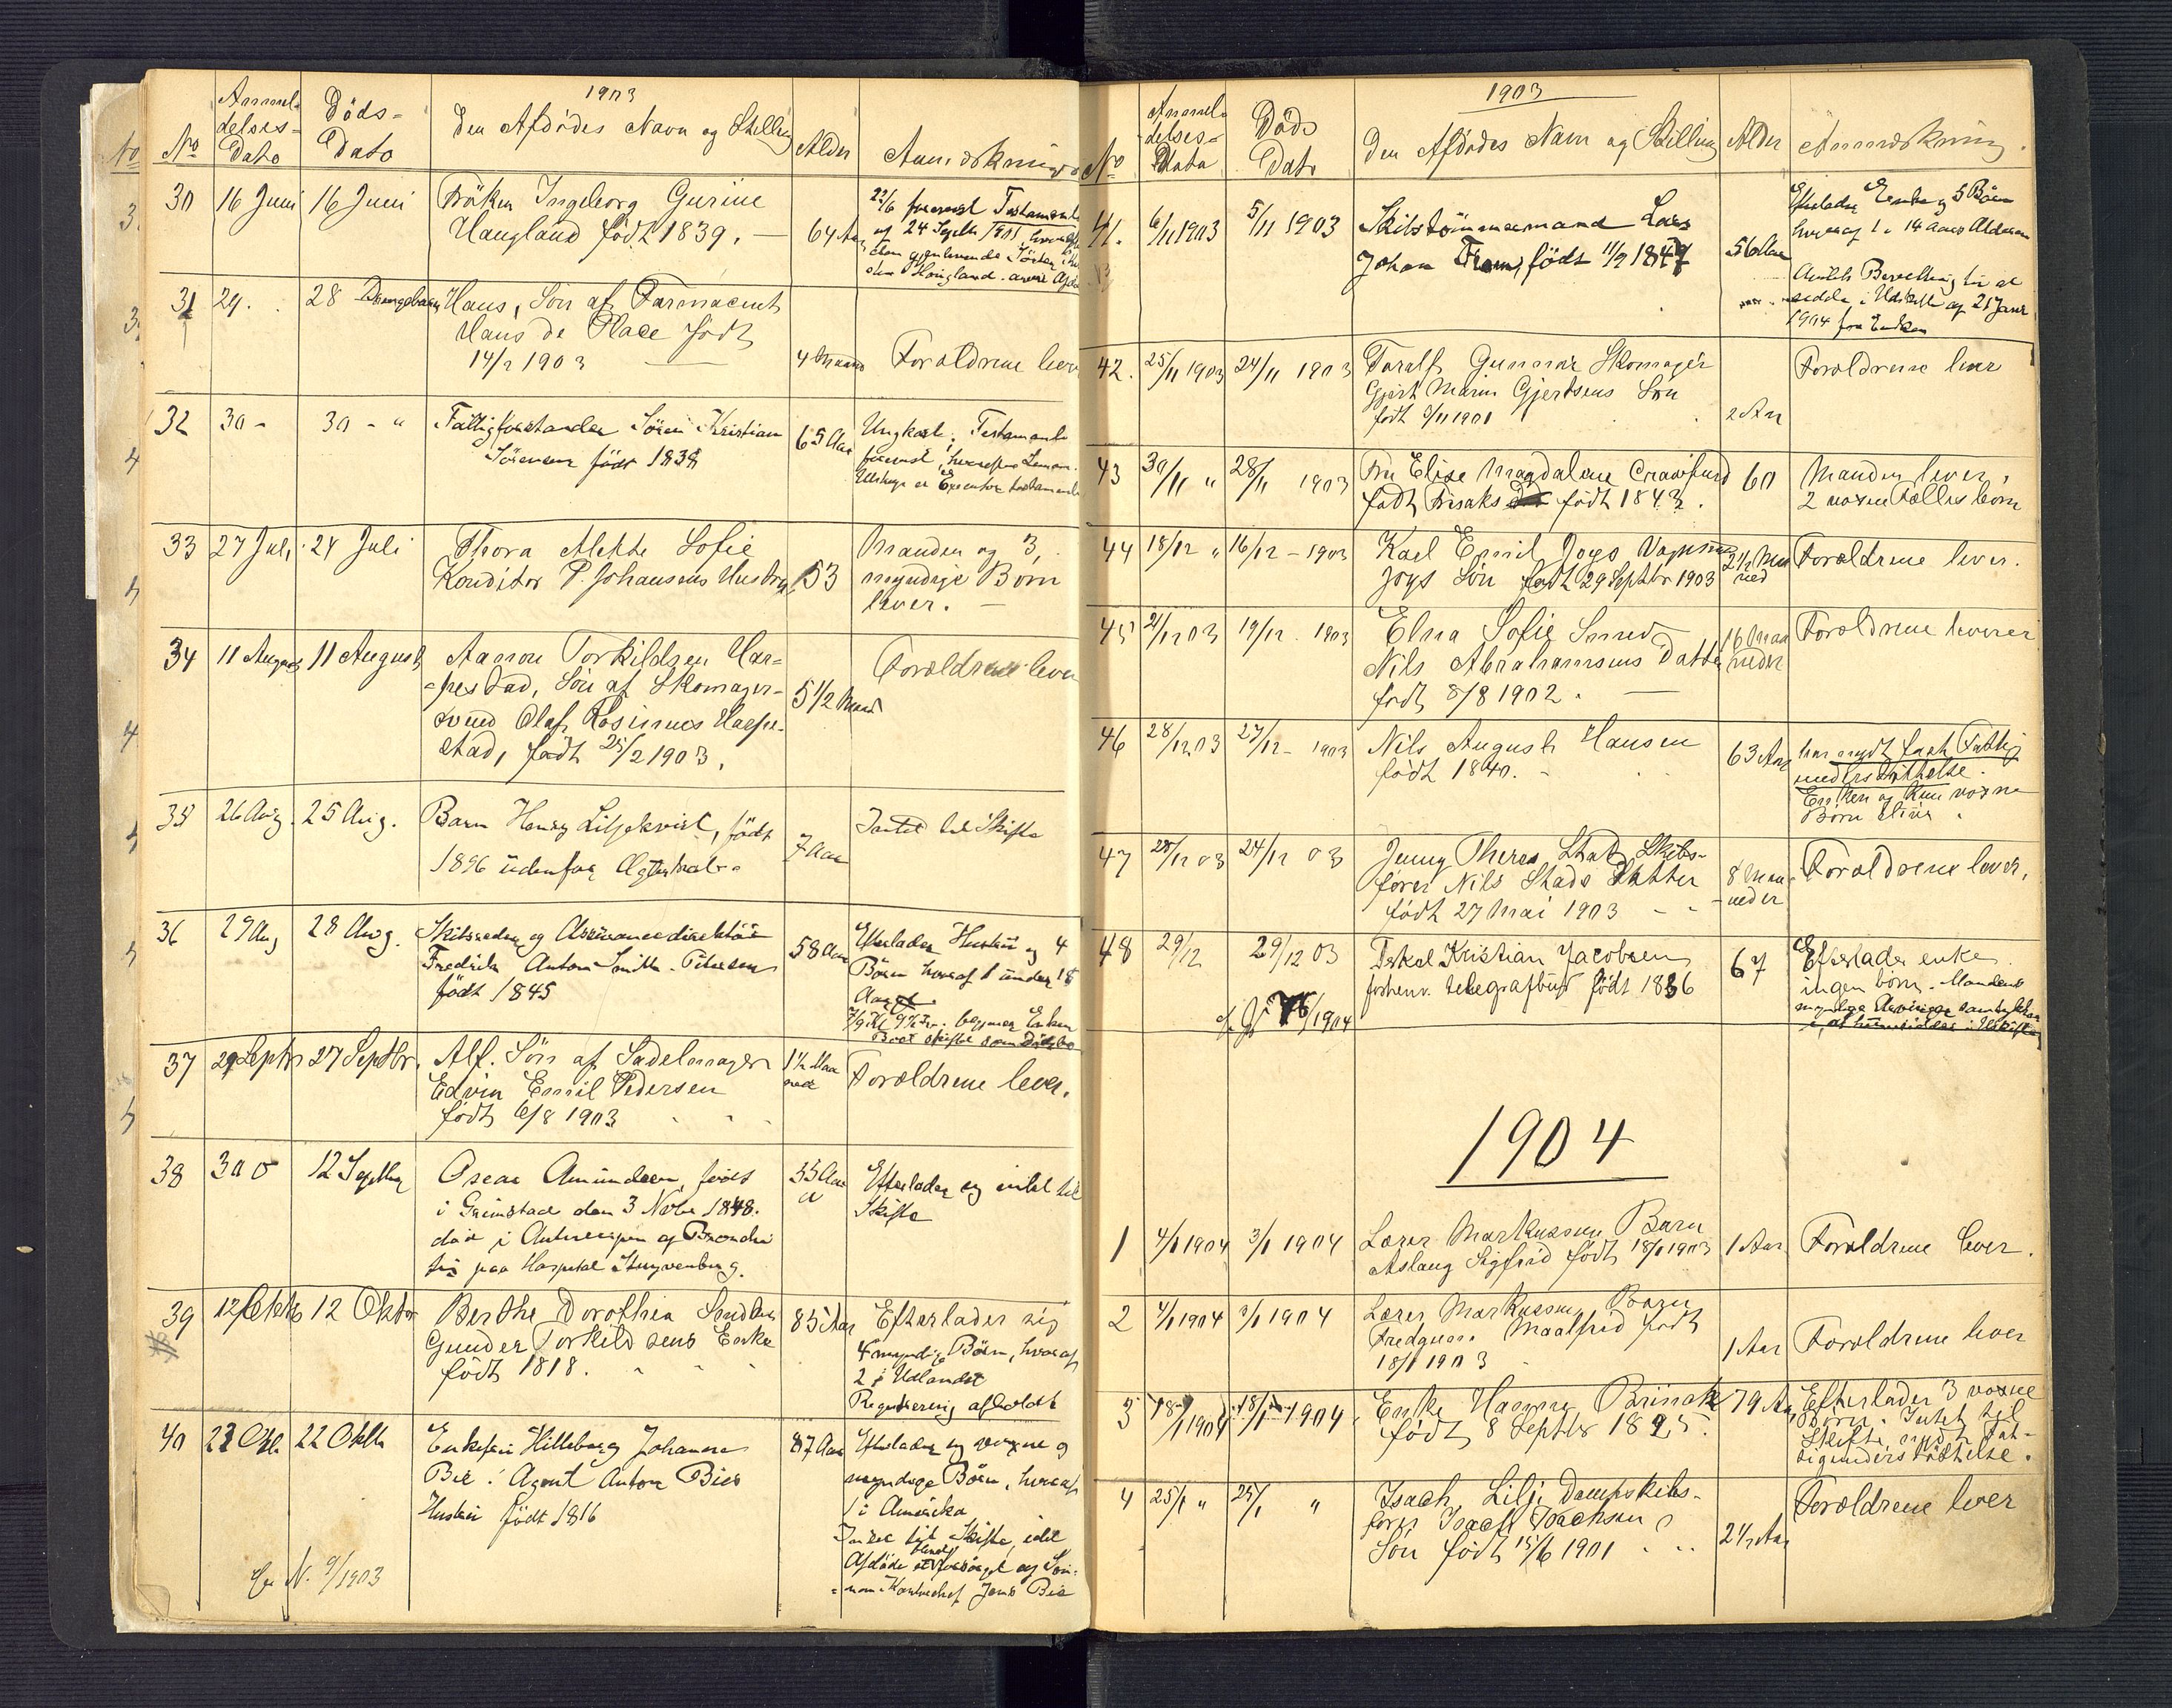 1903
No
Anmel-
delses-
Dato
Döds-
Dato
Den Afdödes Navn og Stilling
Alder
Anmærkning
30
16 Juni
16 Juni
Fröken Ingeborg Gurine
Haugland født 1839.
64 Aar
22/6 fremvist Testamente
af 24 Septb 1901,
31
29.
28
Drengebarn Hans, Sön af Farmaceut
Hans de Place født
14/2 1903
4 Maaned
Forældrene lever
32
30 -
30 - "
Fattigforstander Sören Kristian
Sörensen født 1838
65 Aar
Ungkarl. Testamente
fremvist,
33
27 Juli
24 Juli
Thora Alette Sofie
Konditor P. Johansens Hustru
53
Manden og 3
myndige Börn
lever. -
34
11 August
11 August
Aanon Torkildsen Har-
pestad, Sön af Skomager-
svend Olaf Rosinius Harpe-
stad, født 25/2 1903.
5 1/2 Maaned
Forældrene lever
35
26 Aug.
25 Aug.
Barn Henry Liljekvist, født
1896 udenfor Ægteskab.
7 Aar
Intet til Skifte
36
29 Aug
28 Aug.
Skibsreder og Assurancedirektör
Fredrik Anton Smith-Petersen
født 1845
58 Aar
Efterlader Hustru og 4
Börn hvoraf 1 under 18
Aar
Boet skifte som Dödsbo
37
29 Septbr
27 Septbr.
Alf. Sön af Sadelmager
Edvin Emil Pedersen
født 6/8 1903
1 1/2 Maa
ned
Forældrene lever.
38
30
12 Septbr
Oscar Amundsen, født
i Grimstad den 3 Novbr 1848.
död i Antwerpen af
paa Hospital Stuyvenberg.
55 Aar
Efterlader sig intet til
Skifte
39
12 Oktb
12 Oktbr
Berthe Dorothea
Gunder Torkildsens Enke
født 1818.
85 Aar
Efterlader sig
4 myndige Börn, hvoraf
2 i Udlandet
Registrering afholdt
40
23 Okt.
22 Oktb
Enkefru Hilleborg Johanne
Bie. Agent Anton Bies
Hustru født 1816
87 Aar
Efterlader sig voxne og
myndige Börn, hvoraf
1 i Amerika
Intet til Skifte, idet
Afdöde blev forsörget af Sön-
nen Jens Bie
9/1903
1903
No
Anmel-
delses-
Dato
Döds
Dato
Den Afdödes Navn og Stilling
Alder
Anmærkning.
41.
6/11 1903
5/11 1903
Skibstömmermand Lars
Johan Fram, født 11/2 1847
56 Aar
Efterlader Enke og 5 Börn
hvoraf 1 u. 14 Aars Alderen
Anmeldt Bevilling til at
sidde i Uskifte af 21 Janr
1904 for Enken
42.
25/11 1903
24/11 1903
Taralf Gunnar Skomager
Gjert Marin Gjertsens Sön
født 3/11 1901
2 Aar
Forældrene lever
43
30/11 "
28/11 1903
Fru Elise Magdalene Crawfurd
født Isaks født 1843.
60
Manden lever,
2 voxne Fælles born
44
18/12 "
16/12 - 1903
Karl Emil Jogs
Jogs Sön født 29 Septbr 1903
2 1/2 Maa
ned
Forældrene lever.
45
21/12 03
19/12. 1903
Elna Sofie Smed
Nils Abrahamsens Datter
født 8/8 1902.
16 Maa
neder
Forældrene lever
46
28/12 03
27/12 - 1903
Nils August Hansen
født 1840. -
63 Aar
har nydt fast Fattig
understöttelse.
Enken og kun voxne
Börn
47
28/12 03
24/12 03
Jenny Theres Stad Skibs-
förer Nils Stads Datter
født 27 Mai 1903
8 Maa-
neder
Forældrene lever.
48
29/12
29/12 03
Terkel Kristian Jacobsen
forhenv. telegrafbud født 1836
67
Efterlader enke
ingen börn. Mandens
myndige Arvinger samtykker
i at hun sidder i Uskifte
1904
1
4/1 1904
3/1 1904
Lærer Markussens Barn
Aslaug Sigfrid født 18/1 1903
1 Aar
Forældrene lever.
2
4/1 1904
3/1 1904
Lærer Markussens Barn
Maalfrid født
18/1 1903
1 Aar
Forældrene lever
3
18/1 1904
18/1 1904
Enke Hanne Brinck
født 8 Septbr 1825.
79 Aar
Efterlader 3 voxne
Börn. Intet til
Skifte, nydt Fat-
tigunderstöttelse.
4
25/1 "
25/1 "
Isach Lilje Dampskibs-
förer Isach Isachsens
Sön født 15/6 1901
2 1/2 Aar
Forældrene lever